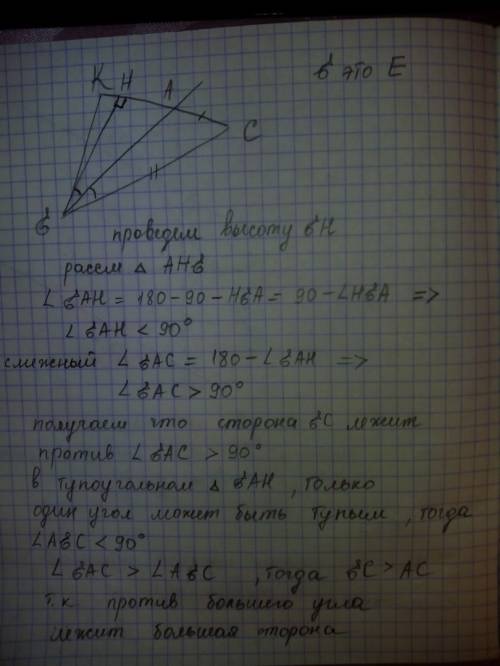 K H A
в это E
C
в
проведем высоту вH
рассм △ AHв
∠ вAH = 180 - 90 - HвA = 90 - ∠HвA =>
∠ вAH < 90°
смежный ∠ вAC = 180 - ∠ вAH =>
∠ вAC > 90°
получаем что сторона вC лежит
против ∠ вAC > 90°
в тупоугольном △ вAH , только
один угол может быть тупым , тогда
∠AвC < 90°
∠ вAC > ∠ AвC , тогда вC > AC
т.к против большего угла
лежит большая сторона